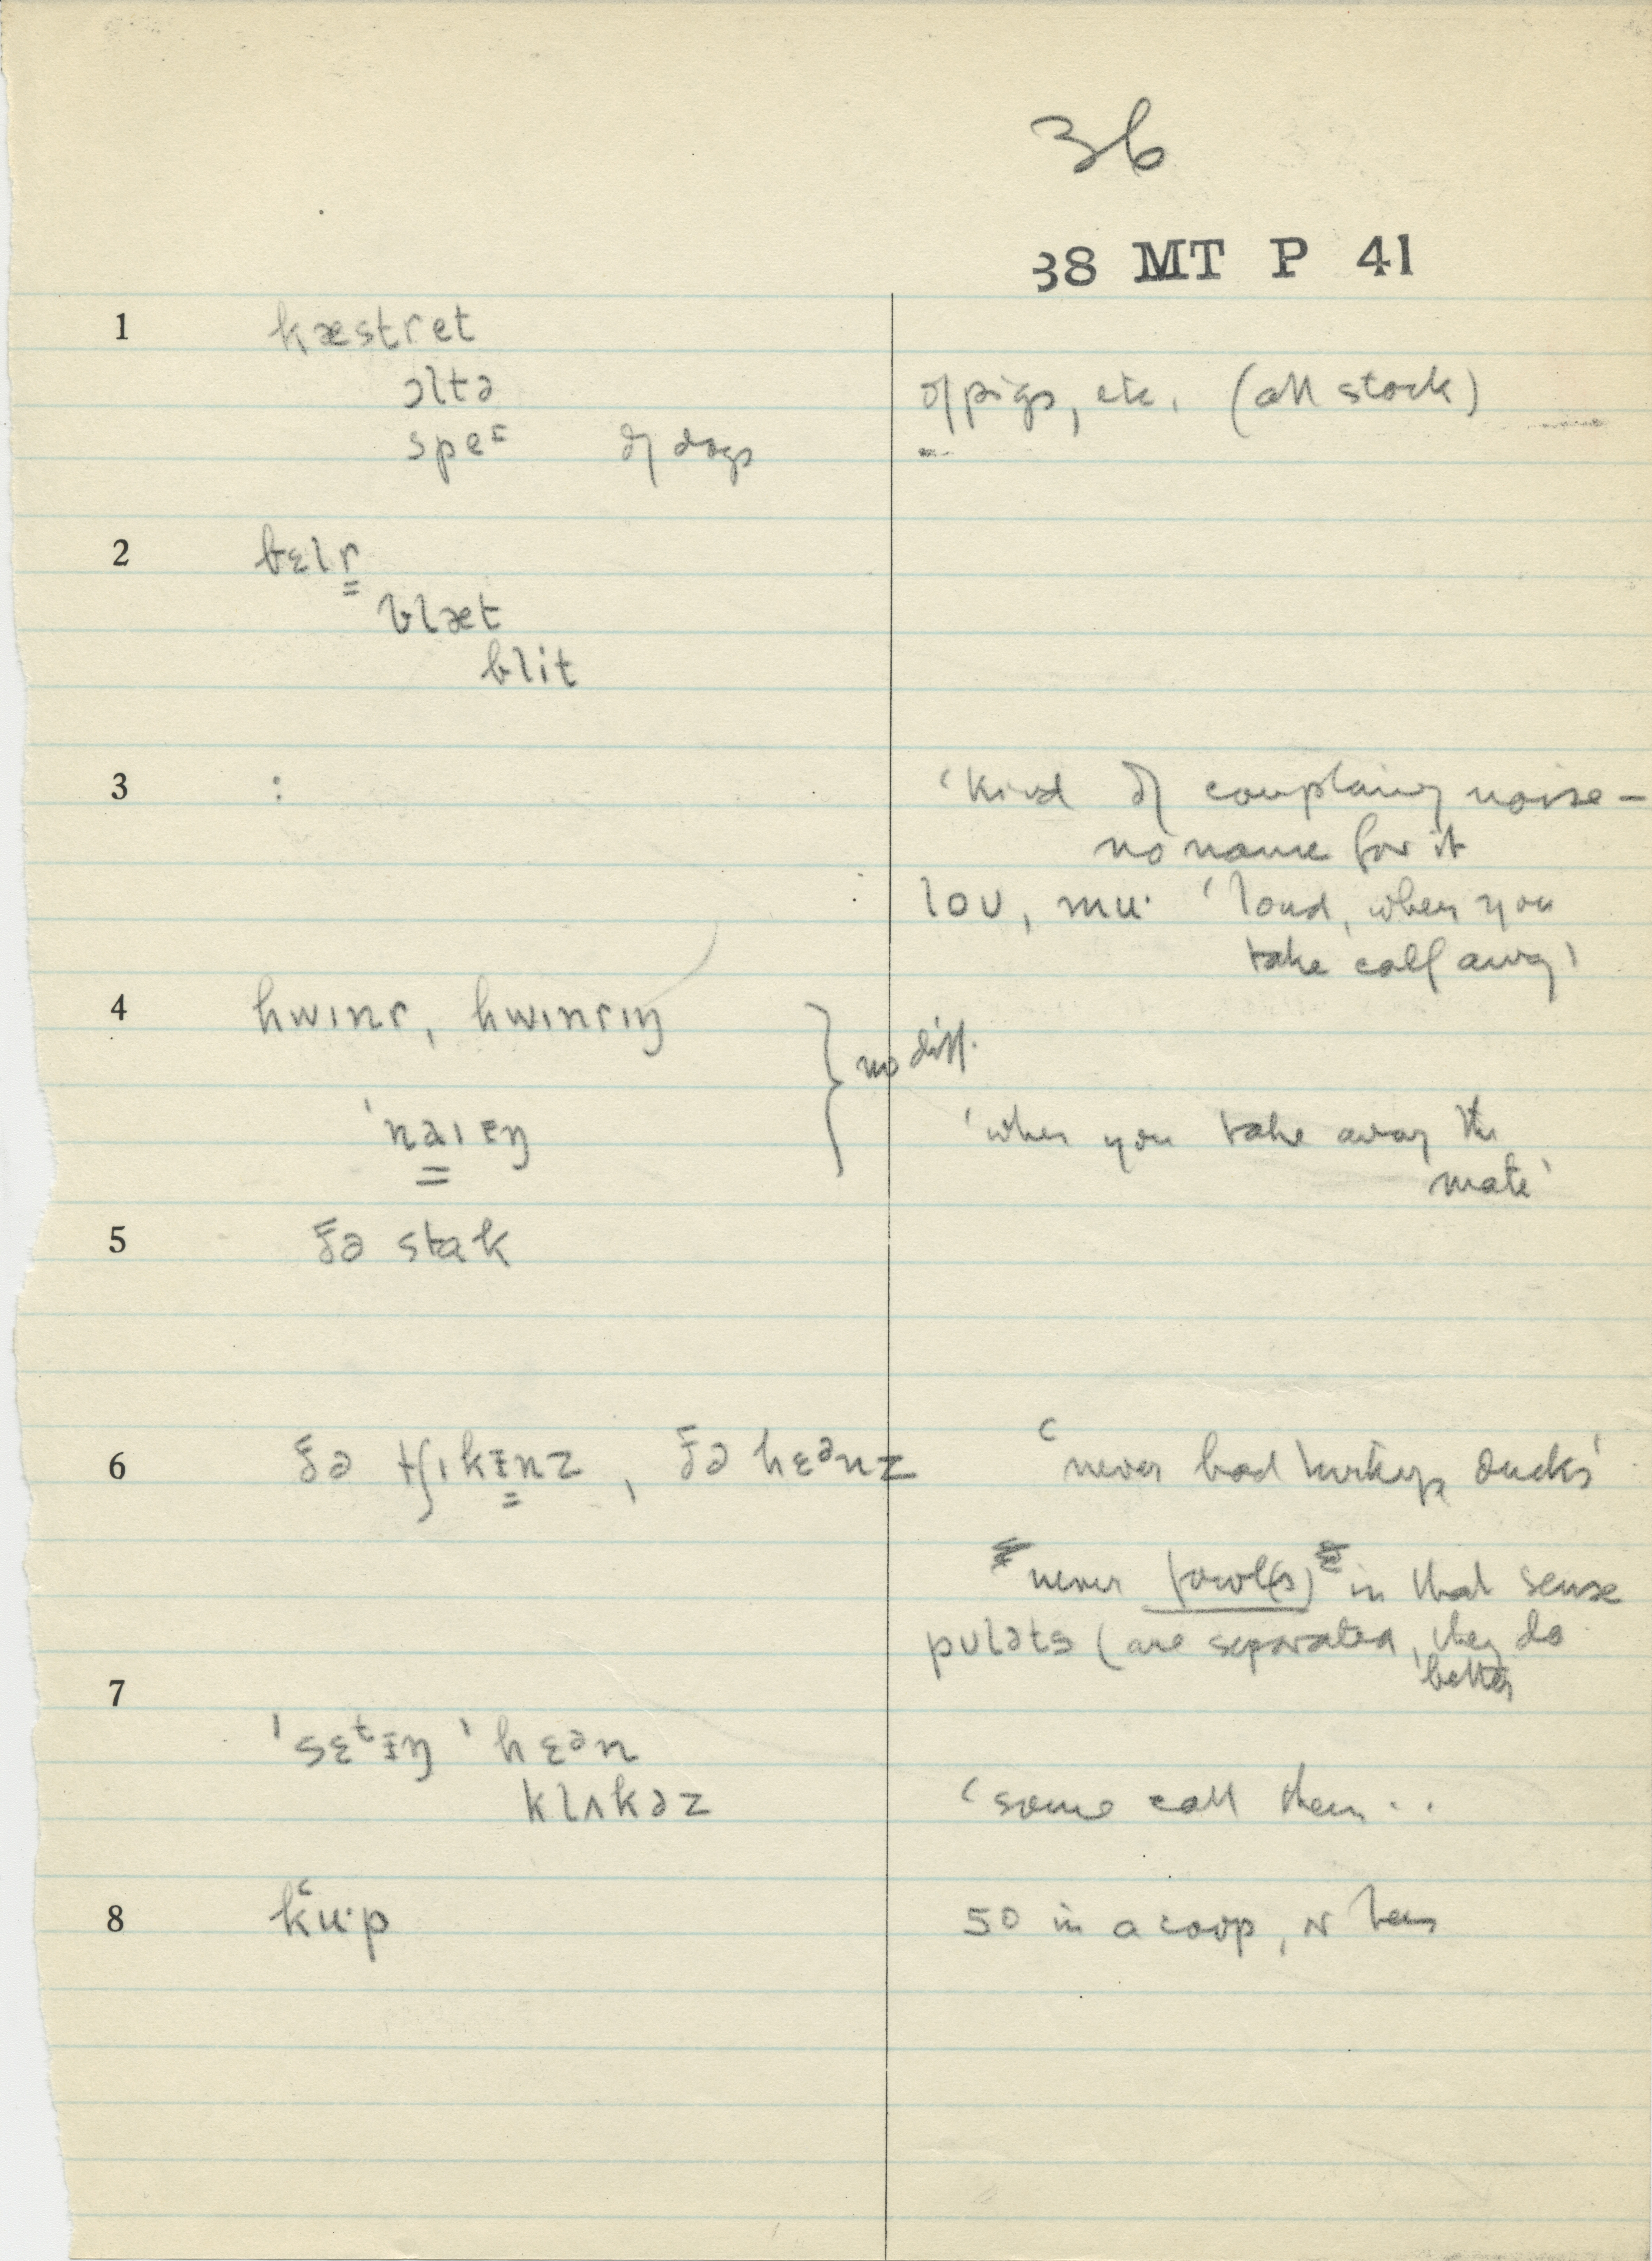 36
38 MT P 41
1 kæstret
ɔltə of pigs, etc. (all stock)
speᵋ of dogs
2 bɛlr
blæt
blit
3 : ‘kind of complaining noise –
no name for it
loʊ, mu· ‘loud, when you
take calf away’
4 hwɪnr, hwɪnrɪŋ
no diff.
ˈnaɪɪŋ ‘when you take away the
mate’
5 ðə stak
6 ðə tʃɪkɪnz, ðə hɛᵊnz ‘never had turkeys, ducks’
never fowl(s) in that sense
pʊləts (are separated, they do
better
7
ˈsɛᵗɪŋ ˈhɛᵊn
klʌkəz ‘some call them..
8 kʻu·p 50 in a coop, or hens